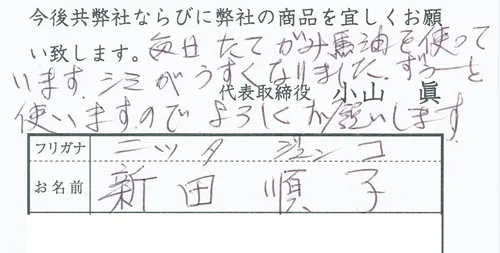 今後共弊社ならびに弊社の商品を宜しくお願
い致します。毎日たてがみ馬油を使って
います。シミがうすくなりました。ずーっと
代表取締役 小山 眞
使いますのでよろしくお願いします
フリガナ ニッタ ジュンコ
お名前 新田 順子